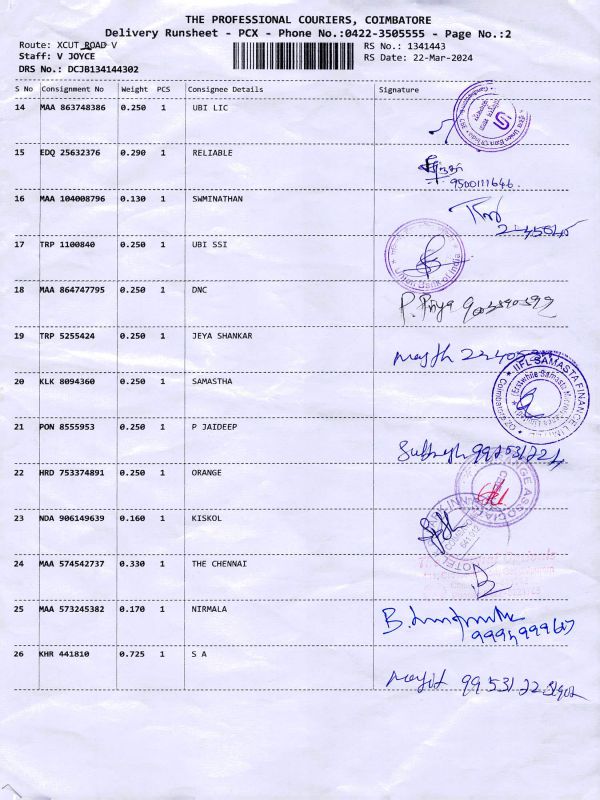 THE PROFESSIONAL COURIERS, COIMBATORE
Delivery Runsheet - PCX - Phone No.:0422-3505555 - Page No.:2
Route: XCUT ROAD V
RS No.: 1341443
Staff: V JOYCE
RS Date: 22-Mar-2024
DRS No.: DCJB134144302
S No Consignment No Weight PCS Consignee Details Signature
14 MAA 863748386 0.250 1 UBI LIC
15 EDQ 25632376 0.290 1 RELIABLE
9500111646.
16 MAA 104008796 0.130 1 SWMINATHAN
17 TRP 1100840 0.250 1 UBI SSI
Union Bank of India
18 MAA 864747795 0.250 1 DNC
P. Priya
19 TRP 5255424 0.250 1 JEYA SHANKAR
20 KLK 8094360 0.250 1 SAMASTHA
IIFL SAMASTA FINANCE
21 PON 8555953 0.250 1 P JAIDEEP
22 HRD 753374891 0.250 1 ORANGE
23 NDA 906149639 0.160 1 KISKOL
24 MAA 574542737 0.330 1 THE CHENNAI
25 MAA 573245382 0.170 1 NIRMALA
26 KHR 441810 0.725 1 S A